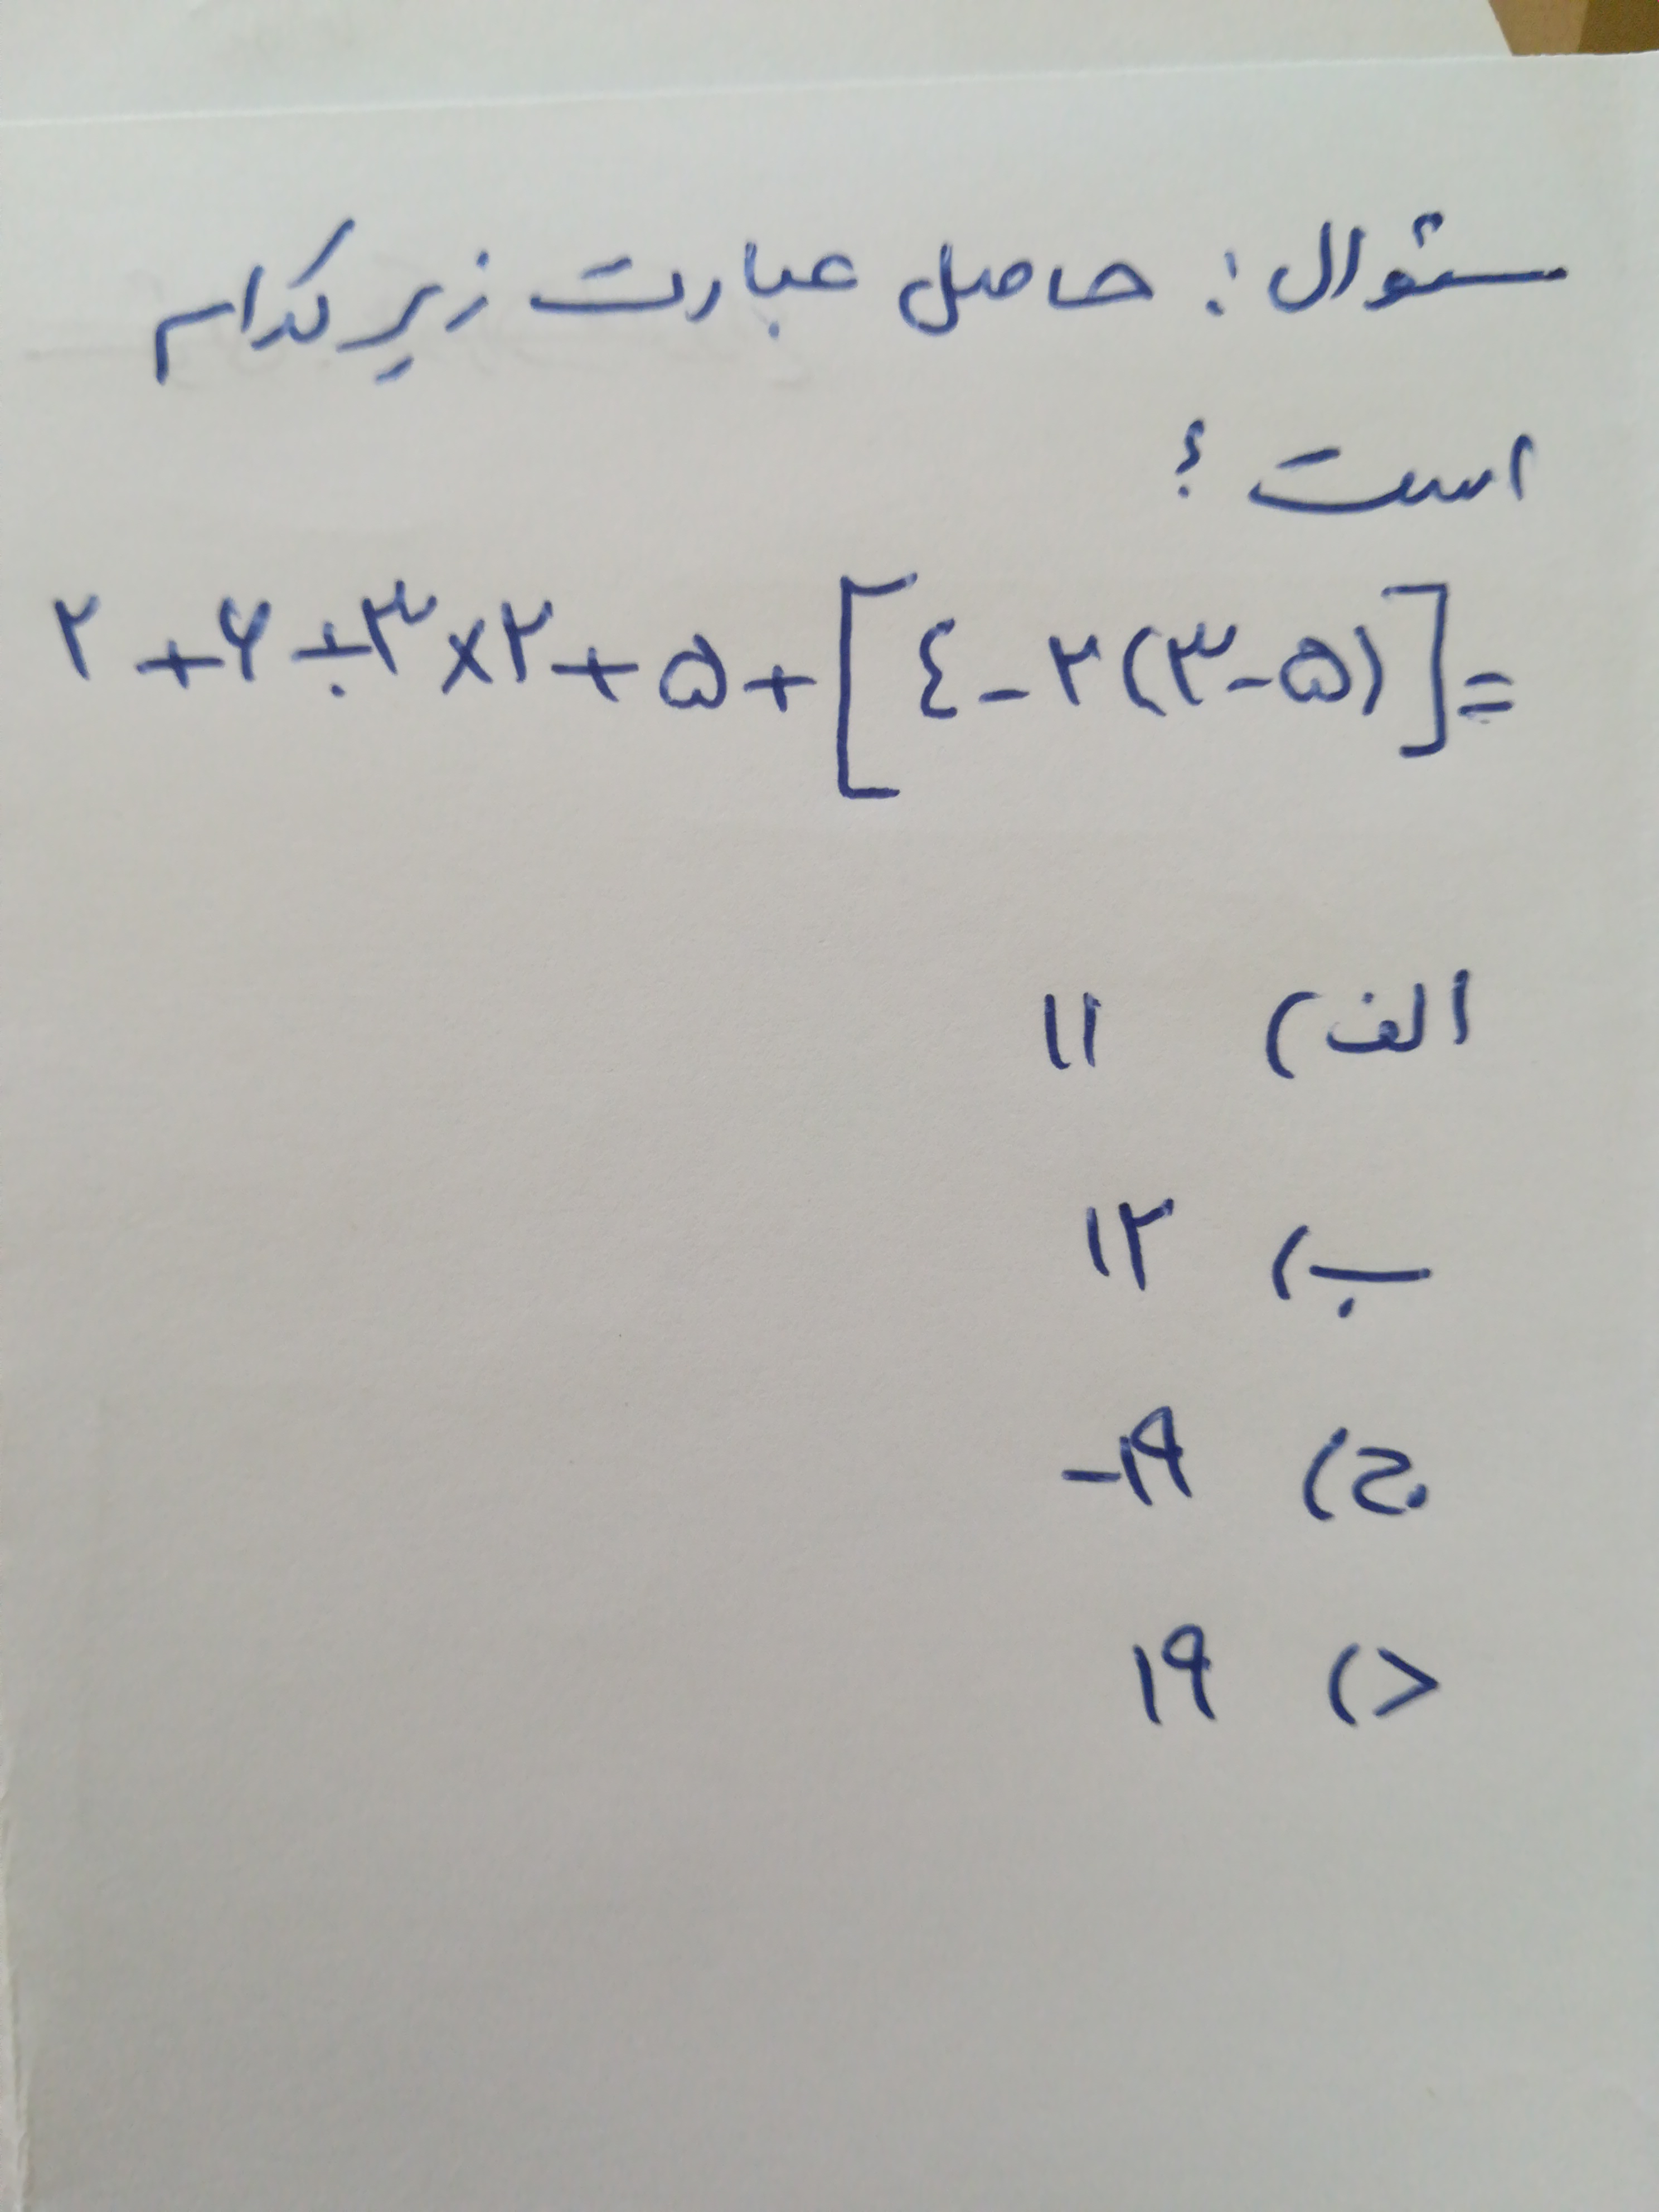 سئوال: حاصل عبارت زیر کدام
است؟
۲+۶÷۳×۲+۵+[٤-۲(۳-۵)]=
الف) ۱۱
ب) ۱۲
ج) -۱۹
د) ۱۹